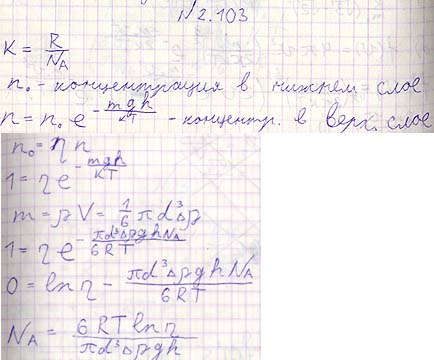 №2.103
K = R/N_A
n₀ - концентрация в нижнем слое
n = n₀ e^(-mgh/кТ) - концентр. в верх. слое
n₀ = η n
1 = η e^(-mgh/кТ)
m = ρV = 1/6 πd³Δρ
1 = η e^(-πd³Δρgh N_A/6RT)
0 = ln η - πd³Δρgh N_A/6RT
N_A = 6RT ln η/πd³Δρgh